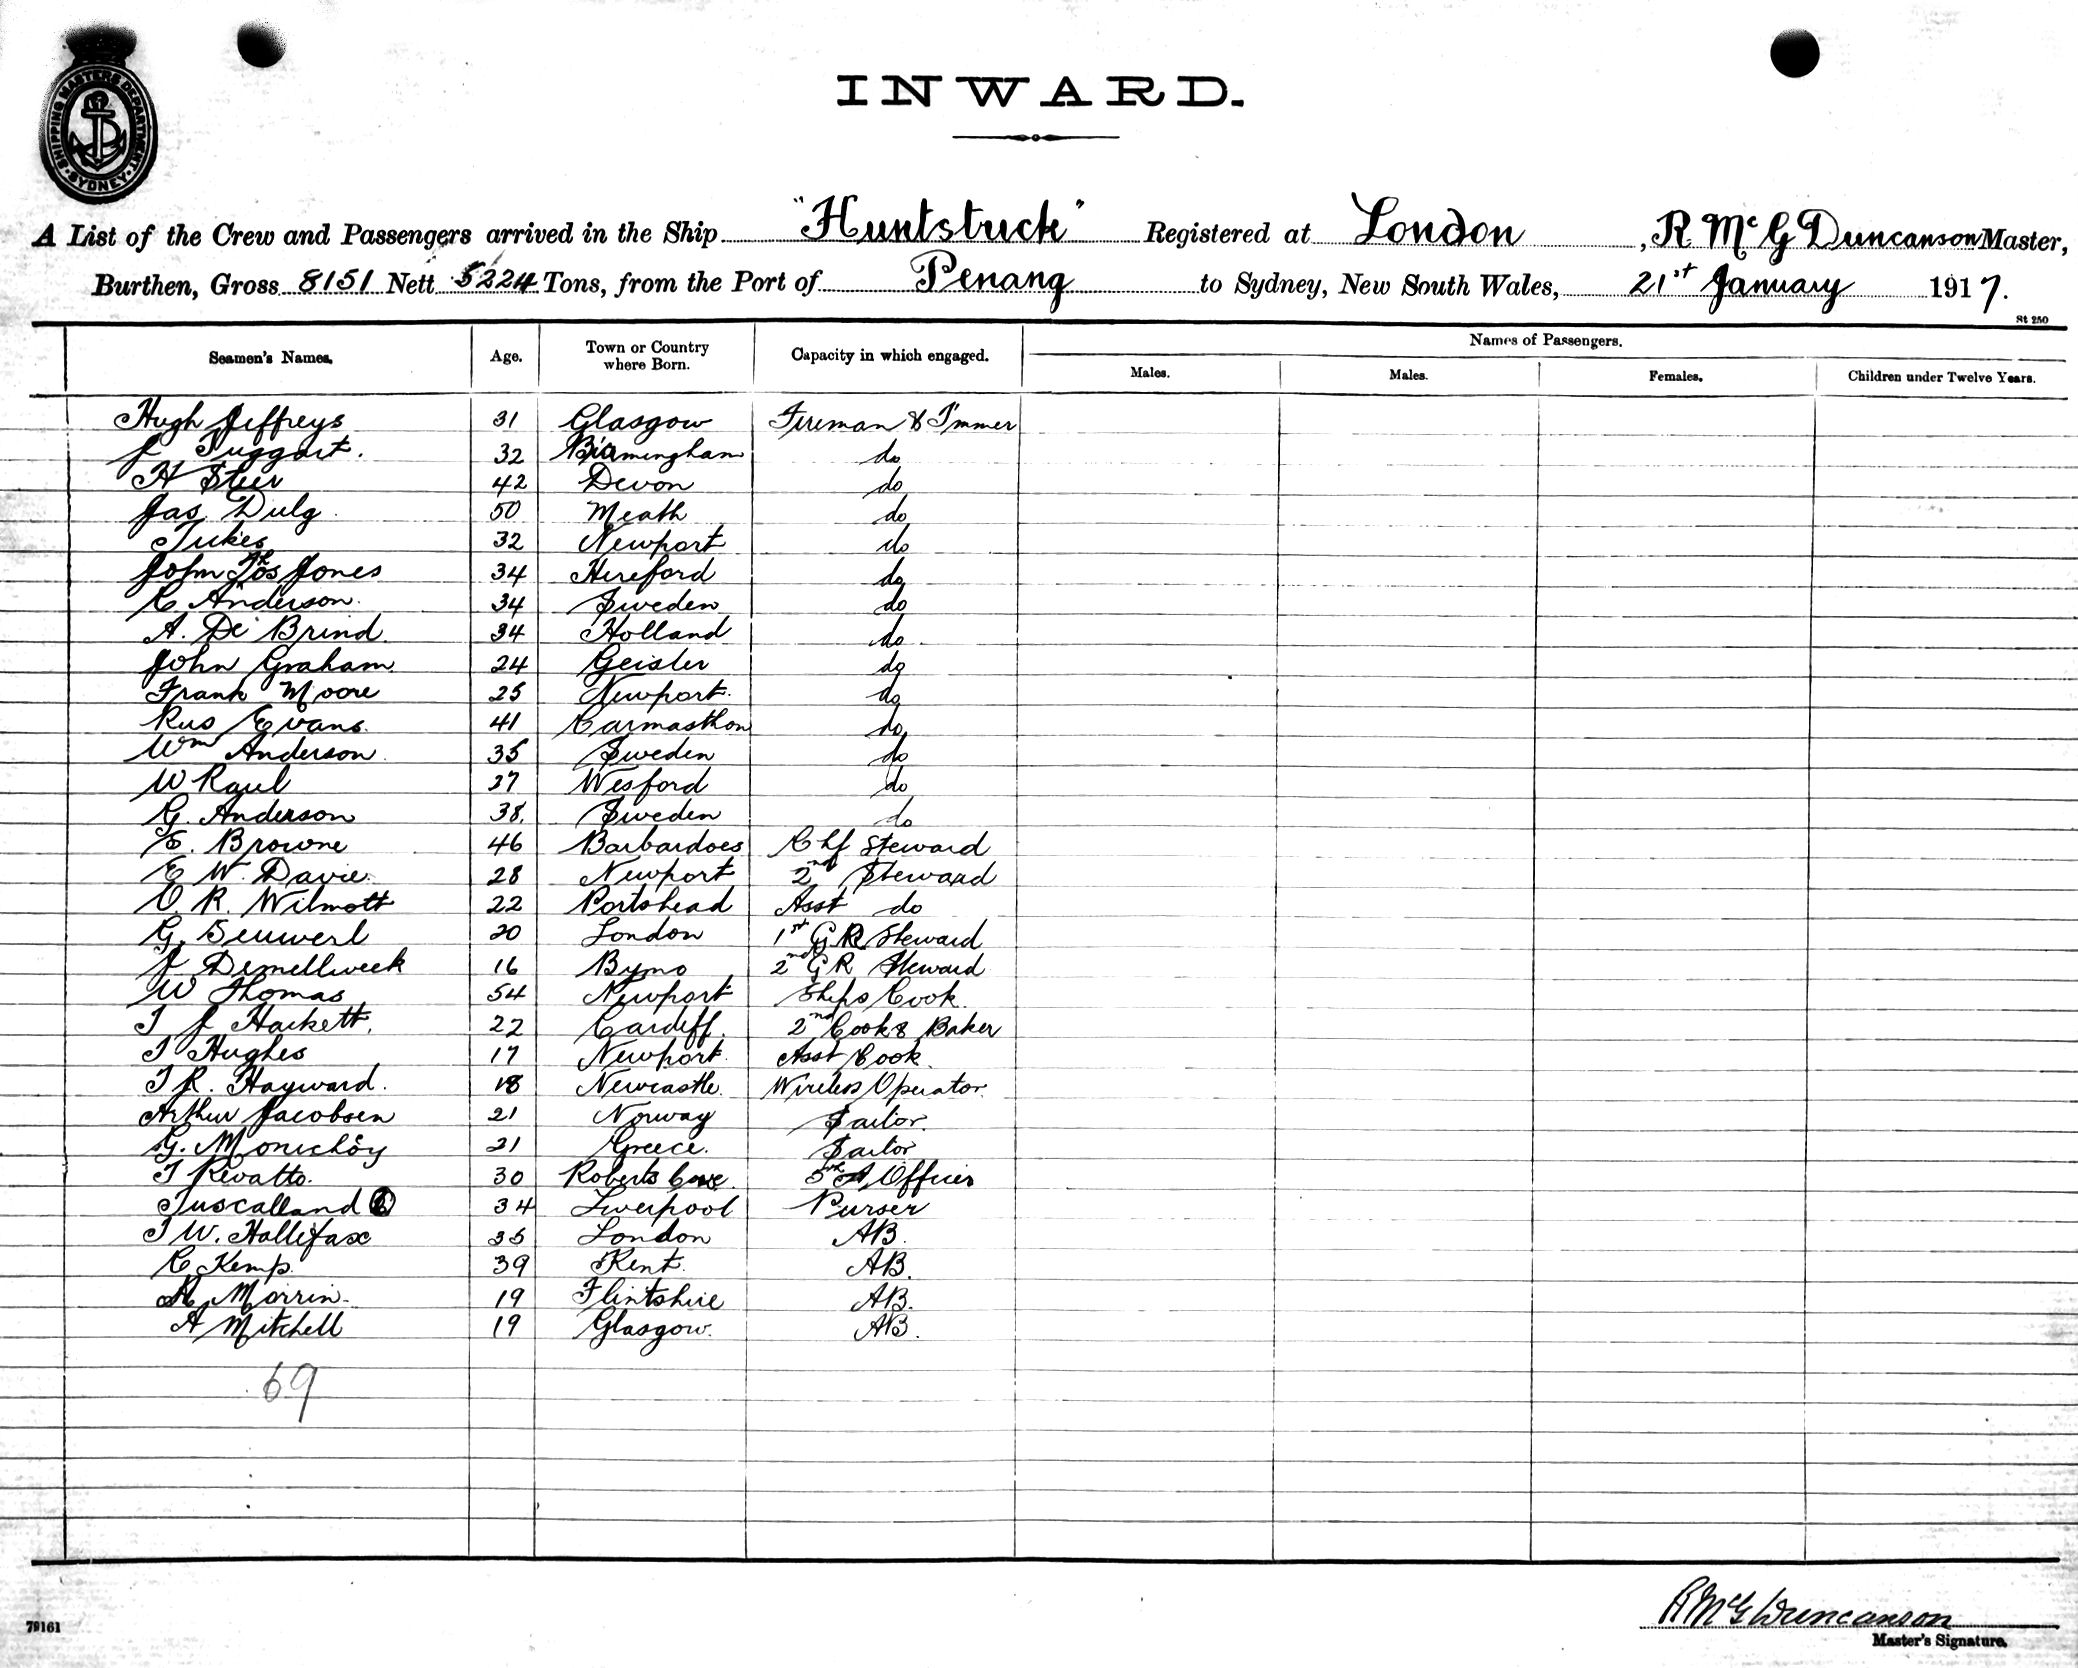 SHIPPING MASTERS DEPARTMENT SYDNEY
INWARD.
A List of the Crew and Passengers arrived in the Ship "Huntstruck" Registered at London, R McG Duncanson Master,
Burthen, Gross 8151 Nett 5224 Tons, from the Port of Penang to Sydney, New South Wales, 21st January 1917.
St 250
Seamen's Names. Age. Town or Country where Born. Capacity in which engaged. Names of Passengers.
Males. Males. Females. Children under Twelve Years.
Hugh Jeffreys 31 Glasgow Fireman & T'mmer
J Tuggart. 32 Birmingham do
H Steer 42 Devon do
Jas Dulg 50 Meath do
Tukes 32 Newport do
John Thos Jones 34 Hereford do
C Anderson. 34 Sweden do
A. De Brind. 34 Holland do
John Graham 24 Geisler do
Frank Moore 25 Newport. do
Rus Evans. 41 Carmasthon do
Wm Anderson 35 Sweden do
W Raul 27 Wesford do
G. Anderson 38. Sweden do
E. Browne 46 Barbardoes Chf Steward
E W. Davie. 28 Newport 2nd Steward
O. R. Wilmott 22 Portshead Asst do
G. 20 London 1st G R Steward
J Demellweek 16 Bymo 2nd G R Steward
W Thomas 54 Newport Ships Cook.
T J Hackett. 22 Cardiff. 2nd Cook & Baker
T Hughes 17 Newport. Asst Cook.
T R. Hayward. 18 Newcastle. Wireless Operator.
Arthur Jacobsen 21 Norway Sailor.
G. Monichoy 21 Greece. Sailor
T Revatto. 30 Roberts Cove. Officer
Tuscalland 34 Liverpool Purser
T W. Hallifax 35 London AB.
C Kemp. 39 Kent. AB.
Morrin. 19 Flintshire AB.
A Mitchell 19 Glasgow. AB.
69
R McG Duncanson
Master's Signature.
79161